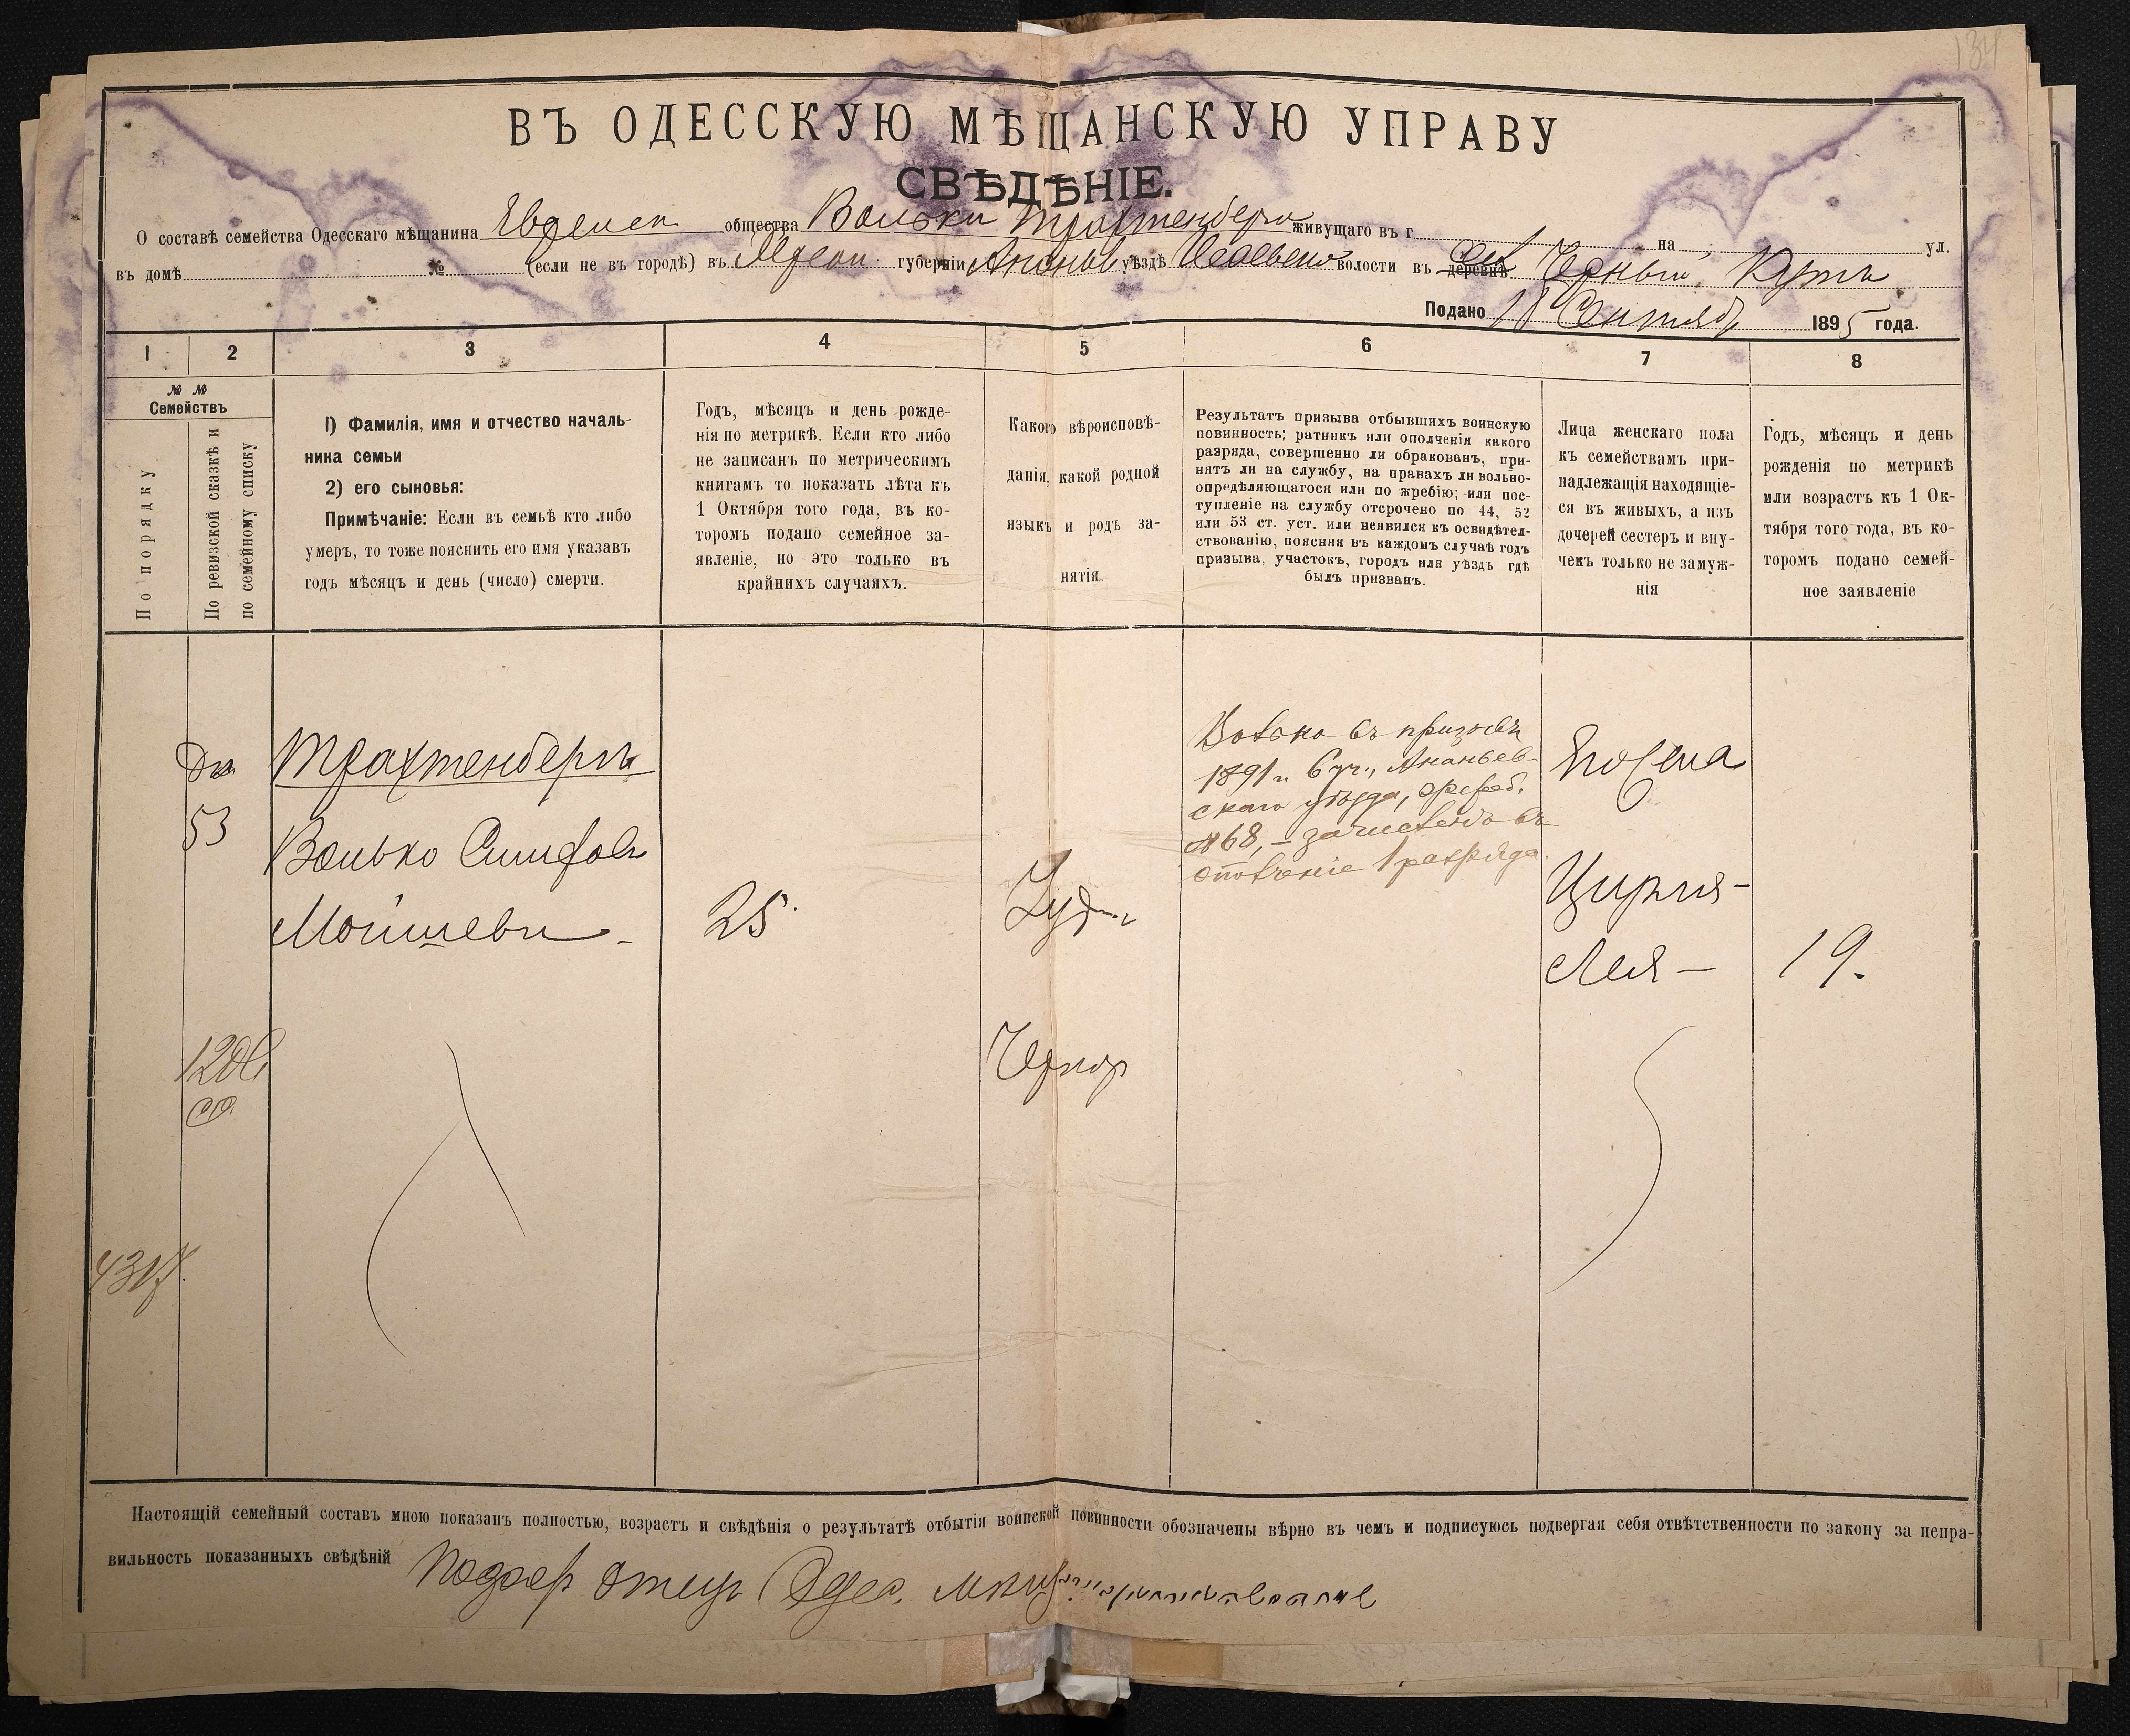 134
ВЪ ОДЕССКУЮ МѢЩАНСКУЮ УПРАВУ
СВѢДѢНІЕ.
О составѣ семейства Одесскаго мѣщанина Еврейск общества Волько Трахтенберга живущаго въ г. на ул.
въ домѣ № (если не въ городѣ) въ Херсон. губерніи Ананьев уѣздѣ волости въ деревнѣ Черный Кутъ
Подано 11 Сентяб 1895 года.
1 2 3 4 5 6 7 8
№ №
Семействъ
По порядку
По ревизской сказкѣ и
по семейному списку
1) Фамилія, имя и отчество началь-
ника семьи
2) его сыновья:
Примѣчаніе: Если въ семьѣ кто либо
умеръ, то тоже пояснить его имя указавъ
годъ мѣсяцъ и день (число) смерти.
Годъ, мѣсяцъ и день рожде-
нія по метрикѣ. Если кто либо
не записанъ по метрическимъ
книгамъ то показать лѣта къ
1 Октября того года, въ ко-
торомъ подано семейное за-
явленіе, но это только въ
крайнихъ случаяхъ.
Какого вѣроисповѣ-
данія, какой родной
языкъ и родъ за-
нятія.
Результатъ призыва отбывшихъ воинскую
повинность; ратникъ или ополченія какого
разряда, совершенно ли обракованъ, при-
нятъ ли на службу, на правахъ ли вольно-
опредѣляющагося или по жребію; или пос-
тупленіе на службу отсрочено по 44, 52
или 53 ст. уст. или неявился къ освидѣтел-
ствованію, поясняя въ каждомъ случаѣ годъ
призыва, участокъ, городъ или уѣздъ гдѣ
былъ призванъ.
Лица женскаго пола
къ семействамъ при-
надлежащія находящіе-
ся въ живыхъ, а изъ
дочерей сестеръ и вну-
чекъ только не замуж-
нія
Годъ, мѣсяцъ и день
рожденія по метрикѣ
или возрастъ къ 1 Ок-
тября того года, въ ко-
торомъ подано семей-
ное заявленіе
Трахтенбергъ
53
Волько Сгмфов
Мойшевъ
25.
Іуд
Волько въ призывъ
1891 г. 6 уч., Ананьев-
скаго уѣзда, жреб.
№ 68, – зачисленъ въ
ополченіе 1 разряда.
Его жена
Цирля-
Лея –
19.
Чернор
Настоящій семейный составъ мною показанъ полностью, возрастъ и свѣдѣнія о результатѣ отбытія воинской повинности обозначены вѣрно въ чемъ и подписуюсь подвергая себя отвѣтственности по закону за непра-
вильность показанныхъ свѣдѣній отецъ Одес.